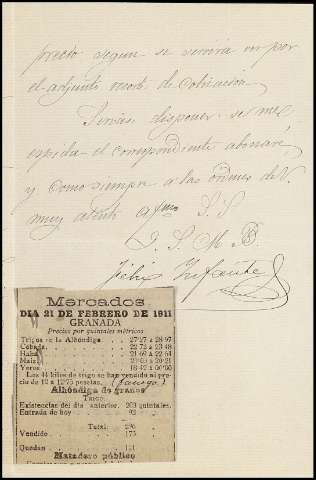 precto segun se servirá ver por
el adjunto mod. de cotización.
Servase disponer se me
espida el correspondiente abonaré,
y como siempre a las órdenes de V.
muy atent afmo S. S.
Q. S. M. B.
Felix Infante
Mercados
DIA 21 DE FEBRERO DE 1911
GRANADA
Precios por quintales métricos
Trigos en la Alhóndiga . . 27'27 á 28'97
Cebada . . 22'73 á 23'48
Habas . . 21'68 á 22'64
Maiz . .
Yeros . .
Los 44 kilos de trigo se han vendido al pre-
cio de 12 á 12'75 pesetas. (fanega)
Alhóndiga de granos
TRIGO.
Existencias del día anterior. 203 quintales.
Entrada de hoy . . 92 »
Total: 296
Vendido . . 175 »
Quedan . . 121
Matadero público